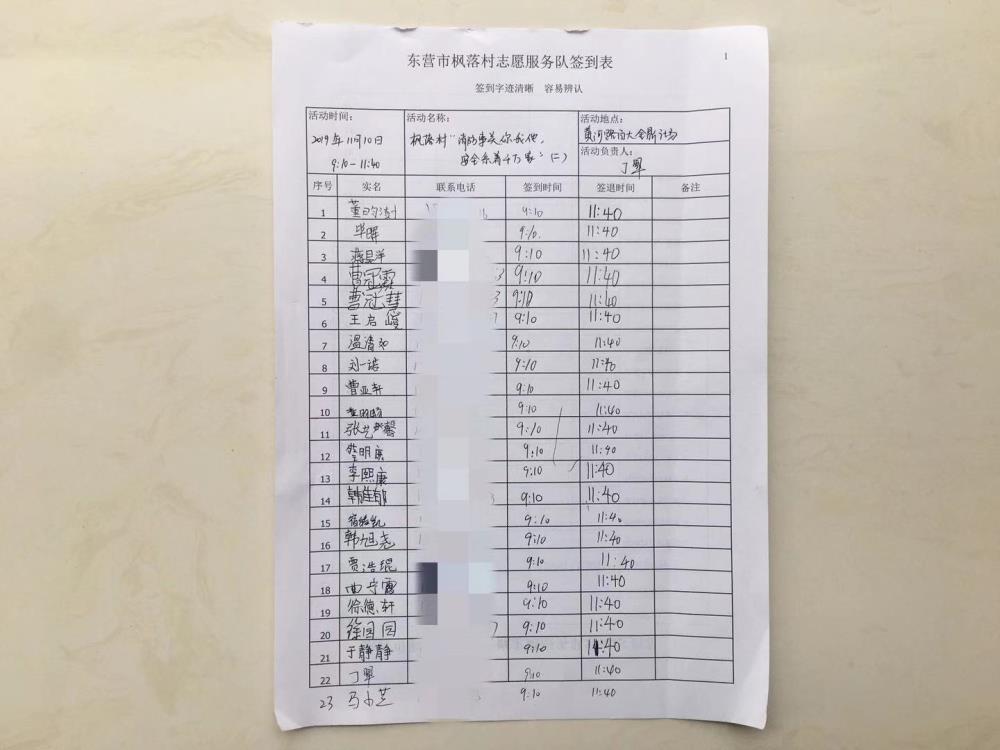 1
东营市枫落村志愿服务队签到表
签到字迹清晰 容易辨认
活动时间： 活动名称： 活动地点：
2019年11月10日 枫落村“消防事关你我他，
9:10-11:40 安全系着千万家”（二） 活动负责人：
丁翠
序号 实名 联系电话 签到时间 签退时间 备注
1 9:10 11:40
2 毕晖 9:10 11:40
3 9:10 11:40
4 曹冠霖 9:10 11:40
5 曹冠慧 9:10 11:40
6 王启 9:10 11:40
7 温清 9:10 11:40
8 刘一诺 9:10 11:40
9 曹亚轩 9:10 11:40
10 9:10 11:40
11 张艺馨 9:10 11:40
12 李明宸 9:10 11:40
13 李熙康 9:10 11:40
14 韩佳郁 9:10 11:40
15 9:10 11:40
16 韩旭尧 9:10 11:40
17 贾浩琨 9:10 11:40
18 曲宁 9:10 11:40
19 徐德轩 9:10 11:40
20 徐园园 9:10 11:40
21 于静静 9:10 11:40
22 丁翠 9:10 11:40
23 马小芝 9:10 11:40